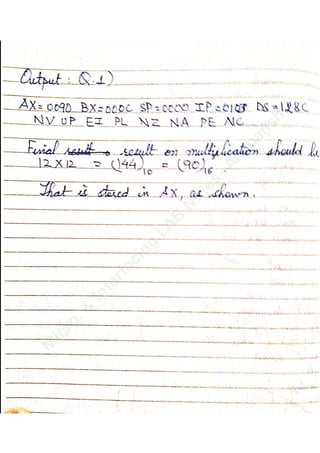 Output : Q.1)
AX=0090 BX=000C SP=0000 IP=0103 DS=128C
NV UP EI PL NZ NA PE NC
Final result on multiplication should be
12X12 = (144)10 = (90)16.
That is stored in AX, as shown.
Micro & Interfacing LAB